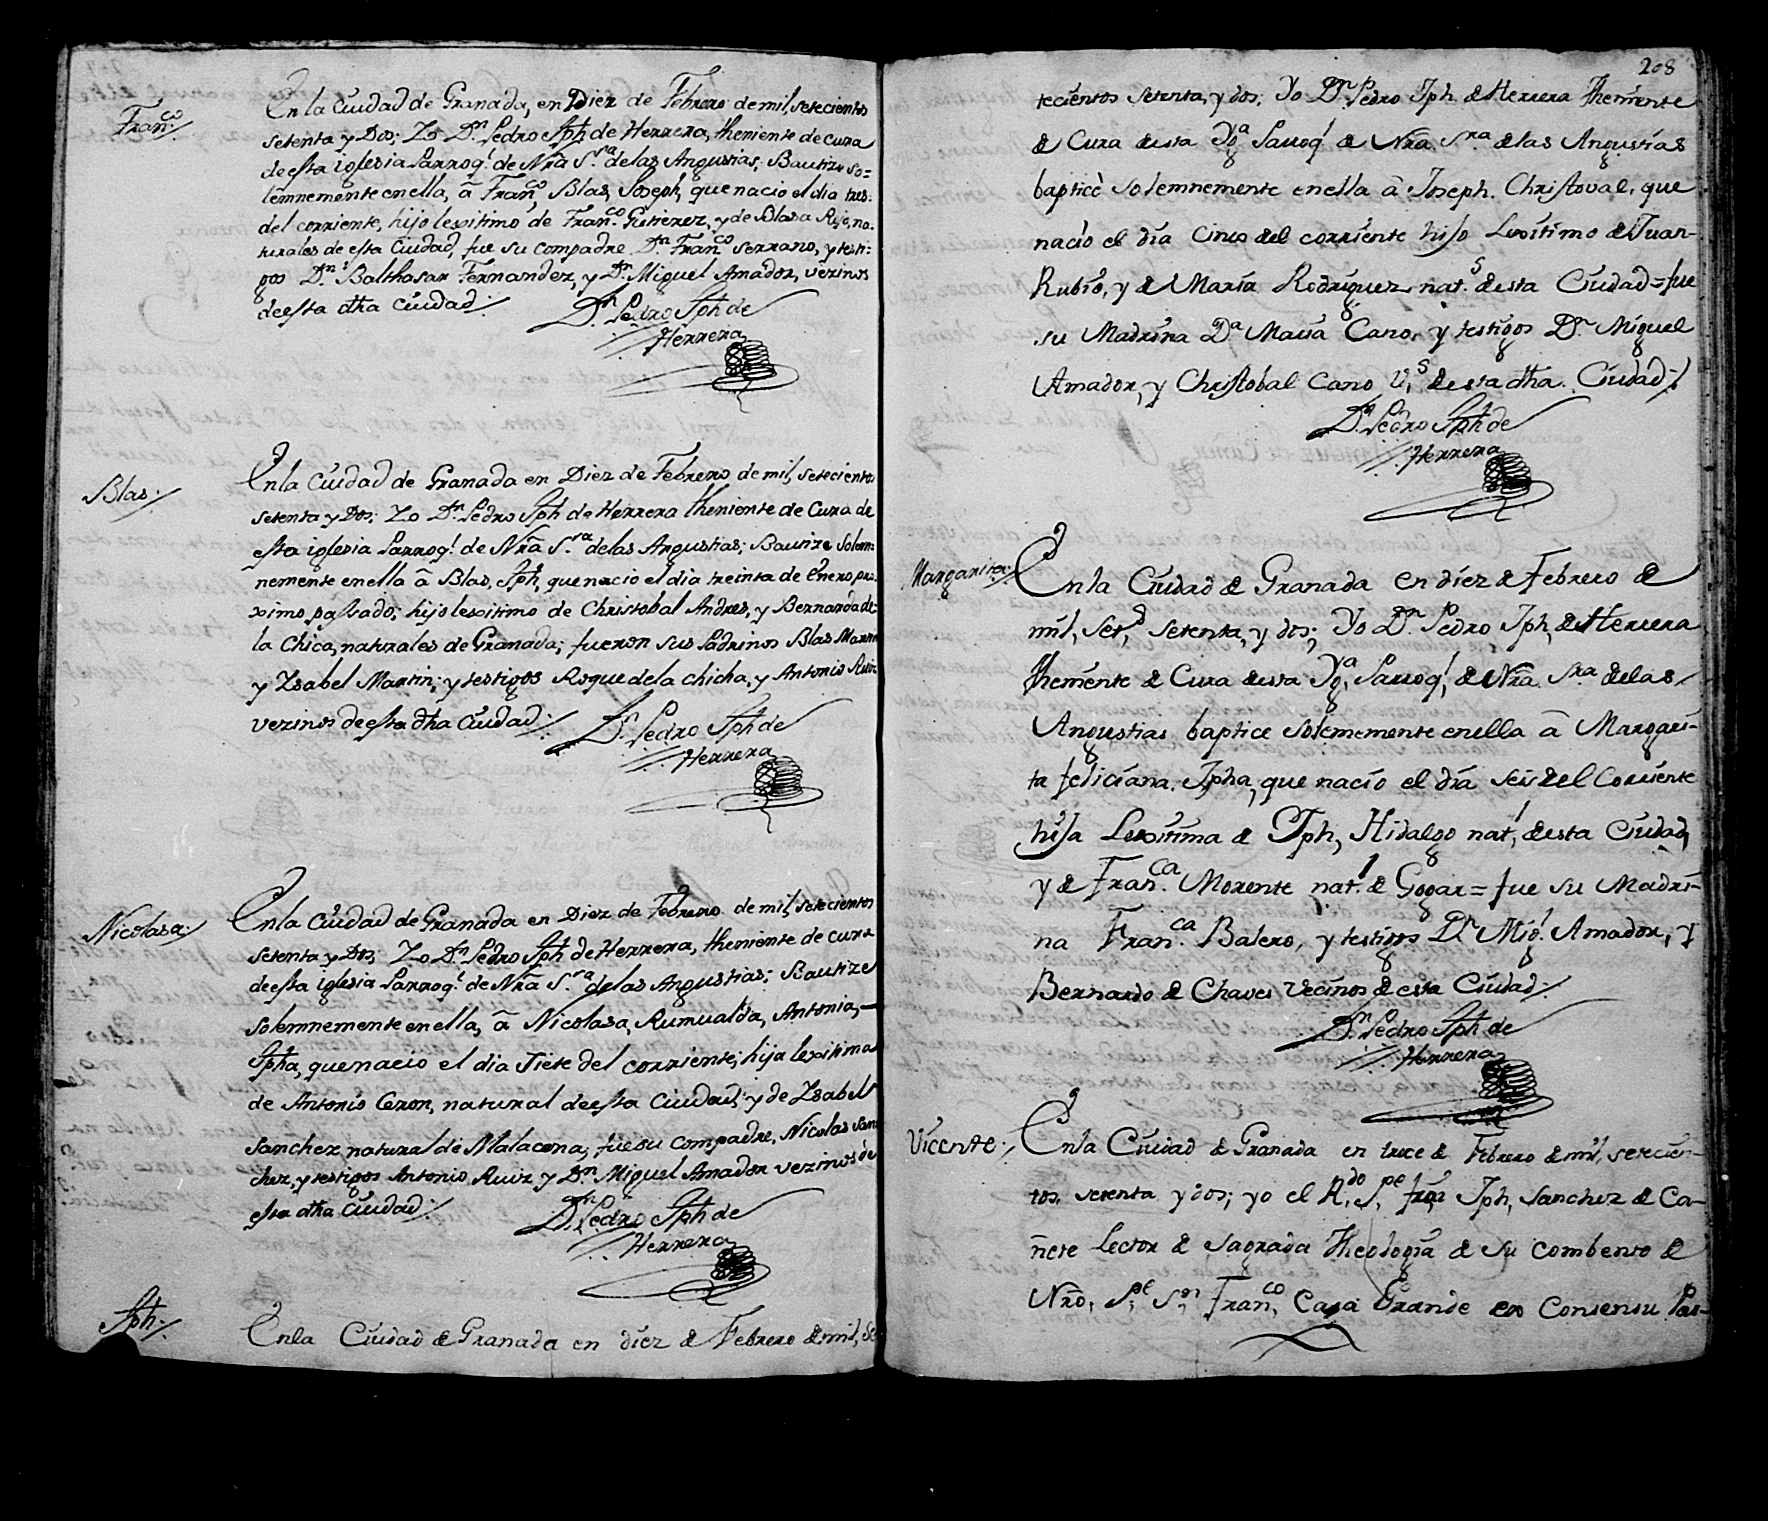 Fran.co
En la Ciudad de Granada, en Diez de Febrero de mil, setecientos
setenta y Dos; Yo Dn Pedro Jph de Herrera, theniente de cura
de esta iglesia Parroq.l de Nra S.ra de las Angustias, Bautize so=
lemnemente en ella, â Fran.co, Blas, Joseph, que nacio el dia tres
del corriente, hijo lexitimo de Fran.co Gutierez, y de Blasa, na-
turales de esta Ciudad, fue su Compadre Dn. Fran.co Serrano, y testi-
gos Dn. Balthasar Fernandez, y Dn Miguel Amador, vezinos
de esta dha Ciudad
Dn Pedro Jph de
Herrera
Blas
En la Ciudad de Granada en Diez de Febrero de mil, setecientos
setenta y Dos; Yo Dn Pedro Jph de Herrera theniente de Cura de
esta iglesia Parroq.l de Nra S.ra de las Angustias; Bautize Solem-
nemente en ella â Blas, Jph, que nacio el dia treinta de Enero, pro-
ximo passado; hijo lexitimo de Christobal Andres, y Bernarda de
la Chica, naturales de Granada; fueron sus Padrinos Blas Martin
y Ysabel Martin; y testigos Roque de la Chicha, y Antonio Ruiz
vezinos de esta dha Ciudad
Dn Pedro Jph de
Herrera
Nicolasa
En la Ciudad de Granada en Diez de Febrero de mil, setecientos
setenta y Dos; Yo Dn Pedro Jph de Herrera, theniente de cura
de esta iglesia Parroq.l de Nra S.ra de las Angustias; Bautize
Solemnemente en ella, â Nicolasa, Rumualda, Antonia,
Jpha, que nacio el dia Siete del corriente; hija lexitima
de Antonio Ceron, natural de esta Ciudad; y de Ysabel
Sanchez, natural de Malacena; fue su compadre, Nicolas San
chez, y testigos Antonio Ruiz y Dn Miguel Amador vezinos de
esta dha Ciudad
Dn Pedro Jph de
Herrera
Jph
En la Ciudad de Granada en diez de Febrero de mil, Se
208
tecientos setenta, y dos; Yo Dn Pedro Jph de Herrera Theniente
de Cura desta Yg.a Parroq.l de Nra. Sra de las Angustias
bapticè Solemnemente en ella â Joseph Christoval, que
nacio el dia Cinco del corriente hijo Lexitimo de Juan
Rubio, y de Maria Rodriguez nat.s desta Ciudad = fue
su Madrina Da Maria Cano, y testigos Dn Miguel
Amador, y Christobal Cano V.s desta dha Ciudad
Dn Pedro Jph de
Herrera
Margarita
En la Ciudad de Granada en diez de Febrero de
mil, Set.s setenta, y dos; Yo Dn Pedro Jph, de Herrera
Theniente de Cura desta Yg.a Parroq.l de Nra. Sra de las
Angustias baptice Solemnemente en ella â Margari-
ta feliciana Jpha, que nacio el dia Seis del Corriente
hija Lexitima de Jph, Hidalgo nat.l desta Ciudad,
y de Fran.ca Morente nat.l de Gogar = fue su Madri-
na Fran.ca Balero, y testigos Dn Mig.l Amador, y
Bernardo de Chaves Vecinos de esta Ciudad
Dn Pedro Jph de
Herrera
Vicente
En la Ciudad de Granada en trece de Febrero de mil, setecien-
tos, setenta y dos; yo el R.do P.e fray Jph, Sanchez de Ca-
ñete Lector de Sagrada Theologia de su Combento de
Nro, P.e S.n Fran.co Casa Grande ex Consensu Par-